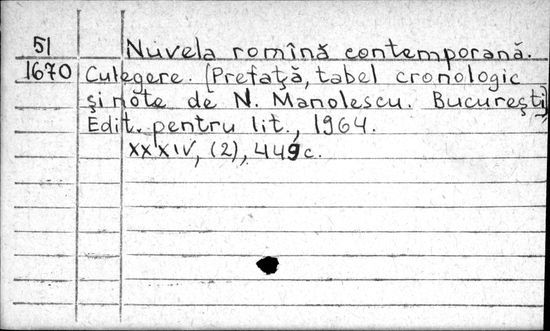 51 Nuvela romînă contemporană.
1670 Culegere. [Prefaţă, tabel cronologic
şi note de N. Manolescu. Bucureşti],
Edit. pentru lit., 1964.
XXXIV, (2), 449c.